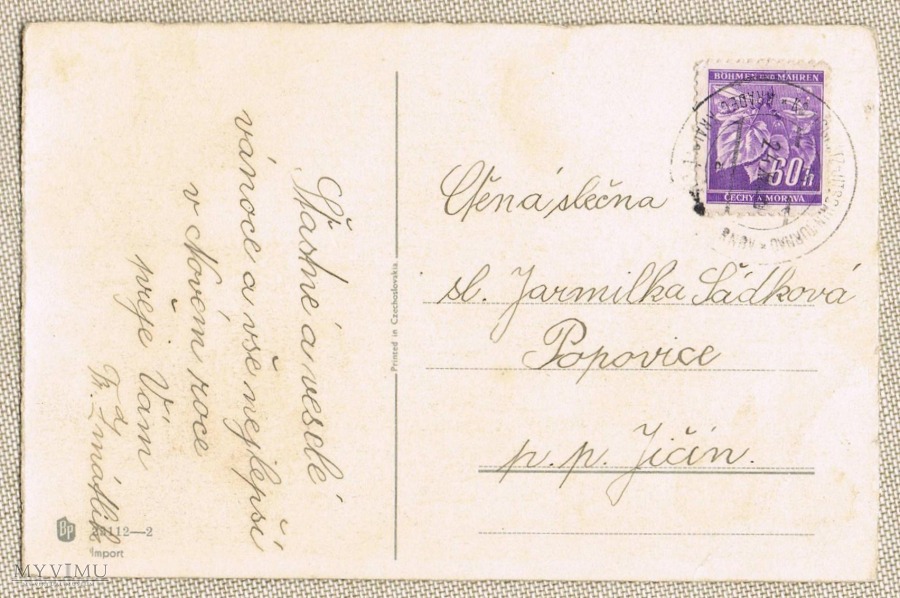 Šťastné a veselé
vánoce a vše nejlepší
v Novém roce
přeje Vám
Printed in Czechoslovakia
BP
112—2
Import
BÖHMEN UND MÄHREN
60 h
ČECHY A MORAVA
Ctěná slečna
sl. Jarmilka Sádková
Popovice
p. p. Jičín.
MYVIMU